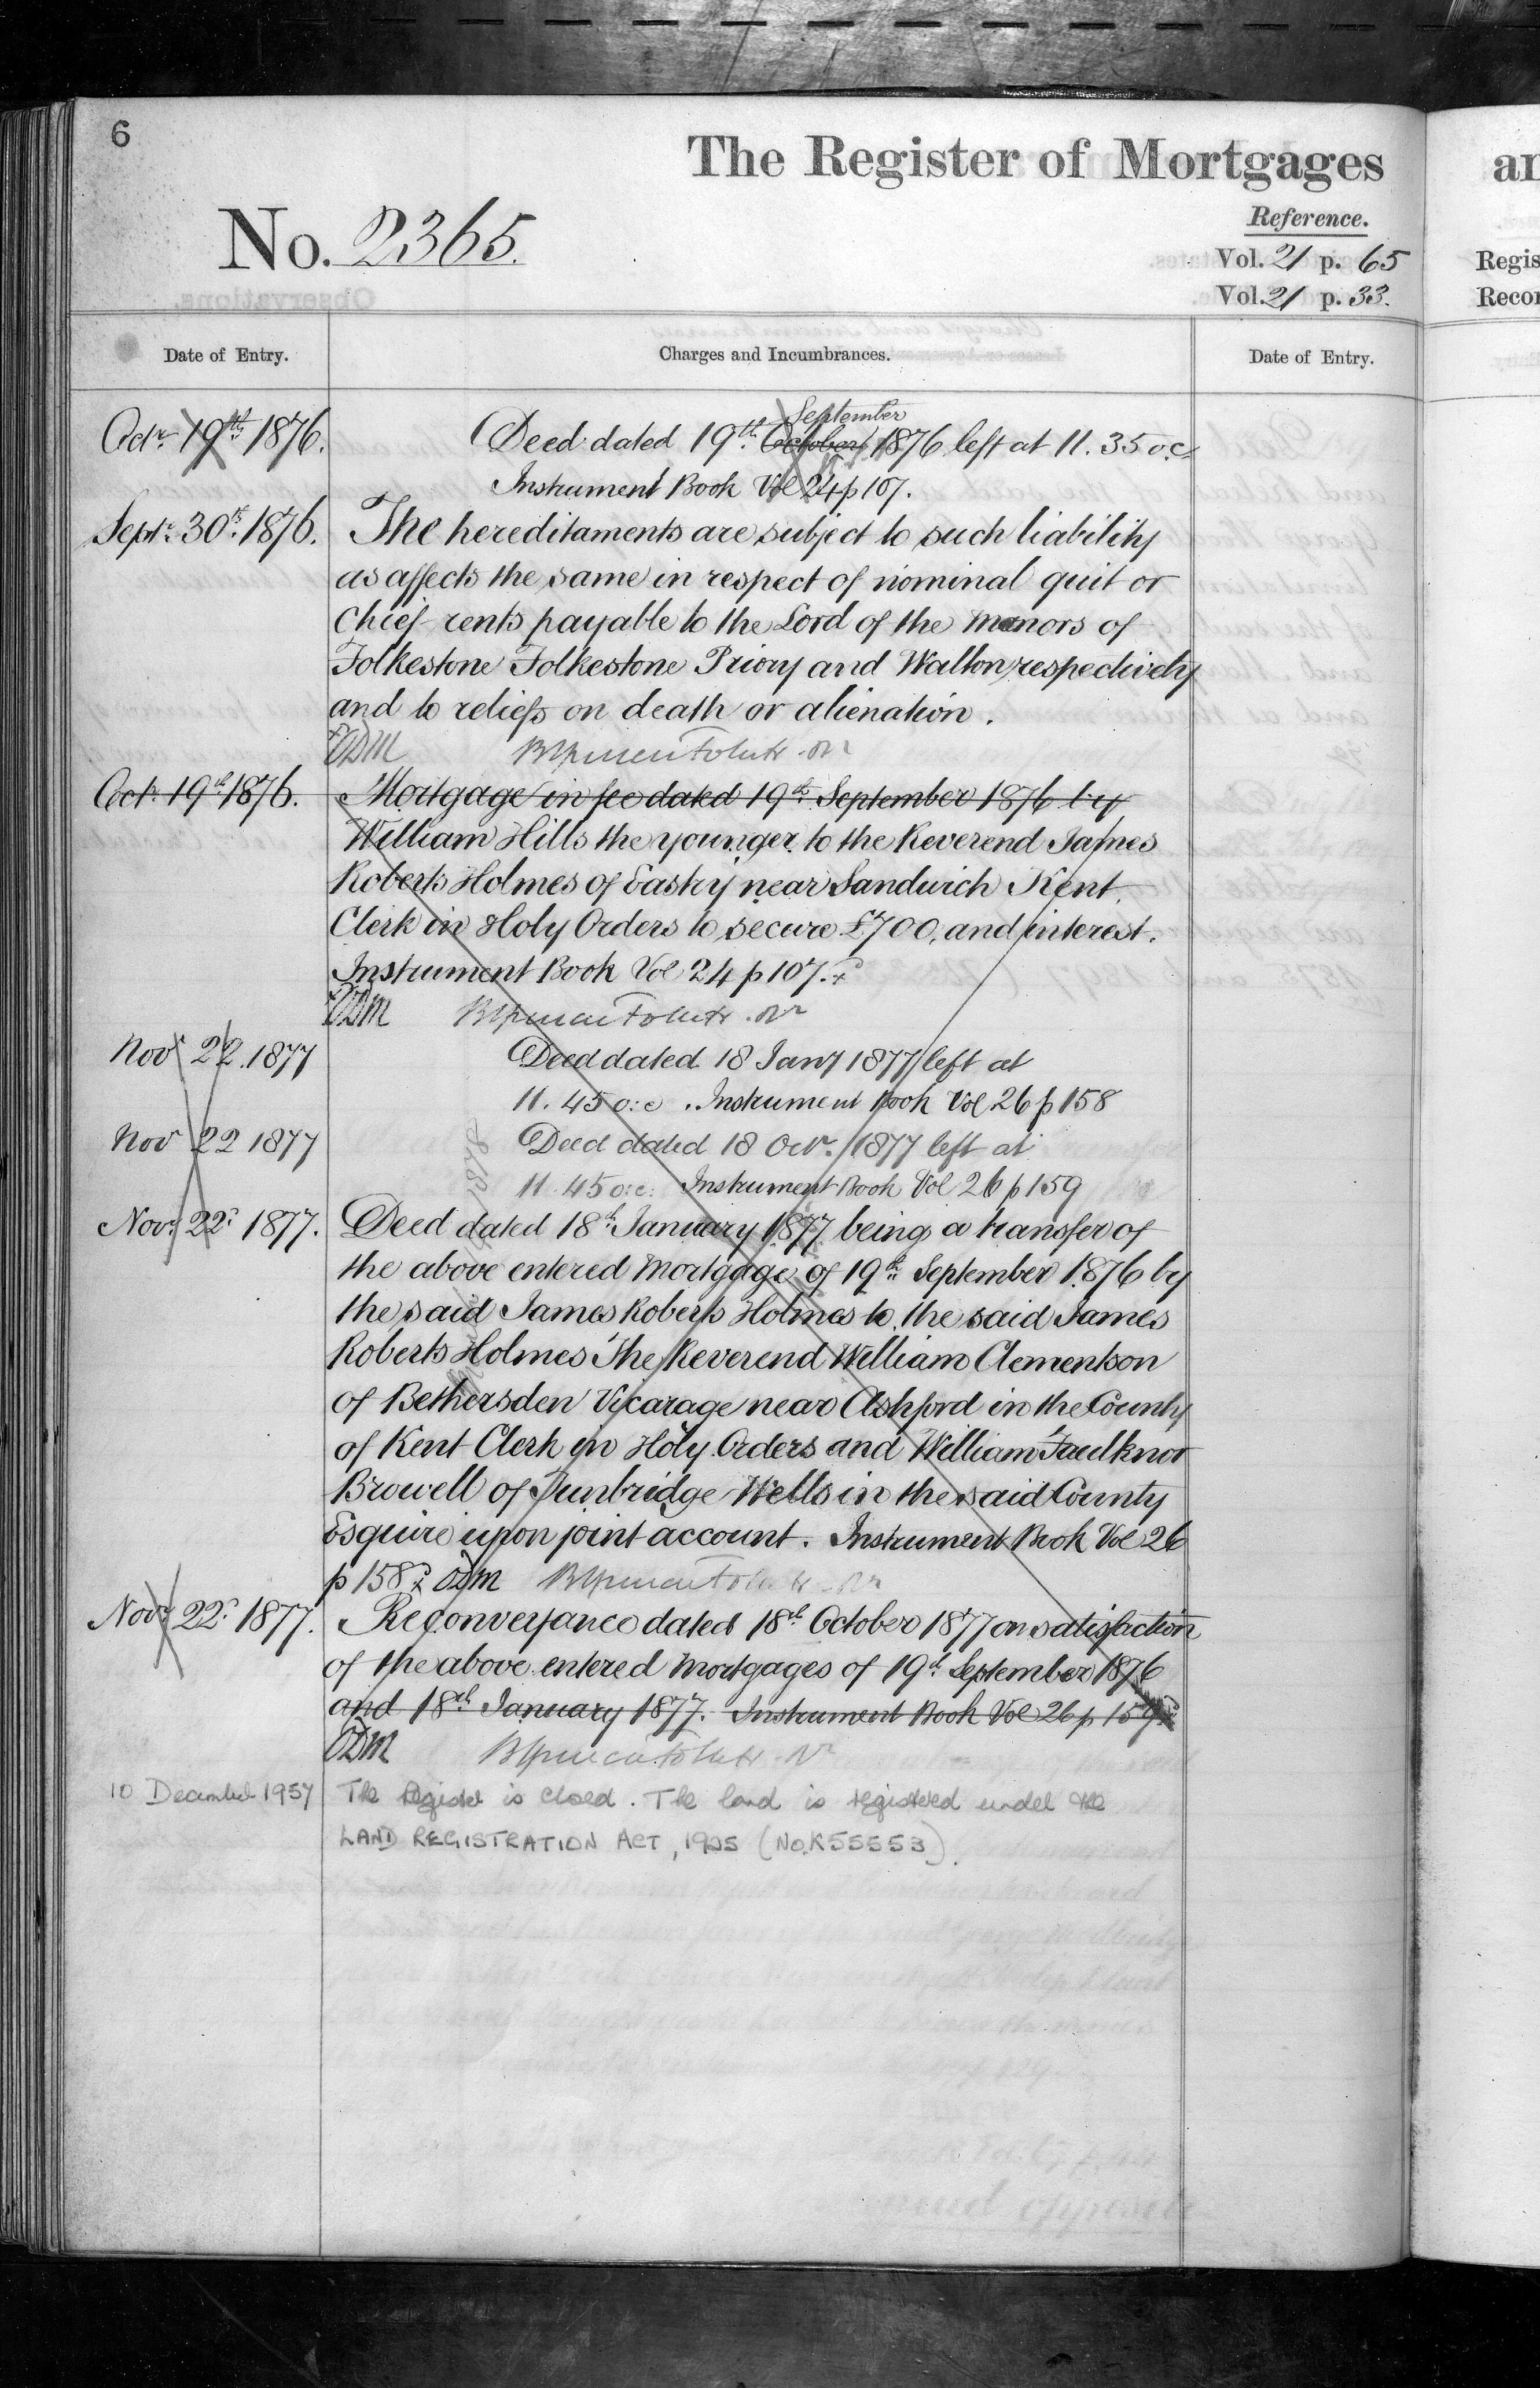 6
The Register of Mortgages
No. 2365.
Reference.
Vol. 21 p. 65
Vol. 21 p. 33.
Regis
Recor
Date of Entry.
Charges and Incumbrances.
Date of Entry.
September
Octr. 19th 1876. Deed dated 19th October 1876 left at 11.35 o.c.
Instrument Book Vol 24 p 107.
Septr. 30th 1876. The hereditaments are subject to such liability
as affects the same in respect of nominal quit or
Chief rents payable to the Lord of the Manors of
Folkestone Folkestone Priory and Walton respectively
and to reliefs on death or alienation.
ODM
Octr. 19th 1876. Mortgage in fee dated 19th September 1876 by
William Hills the younger to the Reverend James
Roberts Holmes of Eastry near Sandwich Kent
Clerk in Holy Orders to secure £700, and interest.
Instrument Book Vol 24 p 107.
ODM
Novr 22. 1877 Deed dated 18 Jany 1877 left at
11.45 o:c. Instrument Book Vol 26 p 158
Novr 22 1877 Deed dated 18 Octr. 1877 left at
11.45 o:c: Instrument Book Vol 26 p 159
Novr. 22d 1877. Deed dated 18th January 1877 being a transfer of
the above entered Mortgage of 19th September 1876 by
the said James Roberts Holmes to the said James
Roberts Holmes The Reverend William Clementson
of Bethersden Vicarage near Ashford in the County
of Kent Clerk in Holy Orders and William Faulknor
Browell of Tunbridge Wells in the said County
Esquire upon joint account. Instrument Book Vol 26
p 158 ODM
Novr. 22d 1877. Reconveyance dated 18th October 1877 on satisfaction
of the above entered Mortgages of 19th September 1876
and 18th January 1877. Instrument Book Vol 26 p 159
ODM
10 December 1957 The Register is closed. The land is registered under the
LAND REGISTRATION ACT, 1925 (No. K55553).